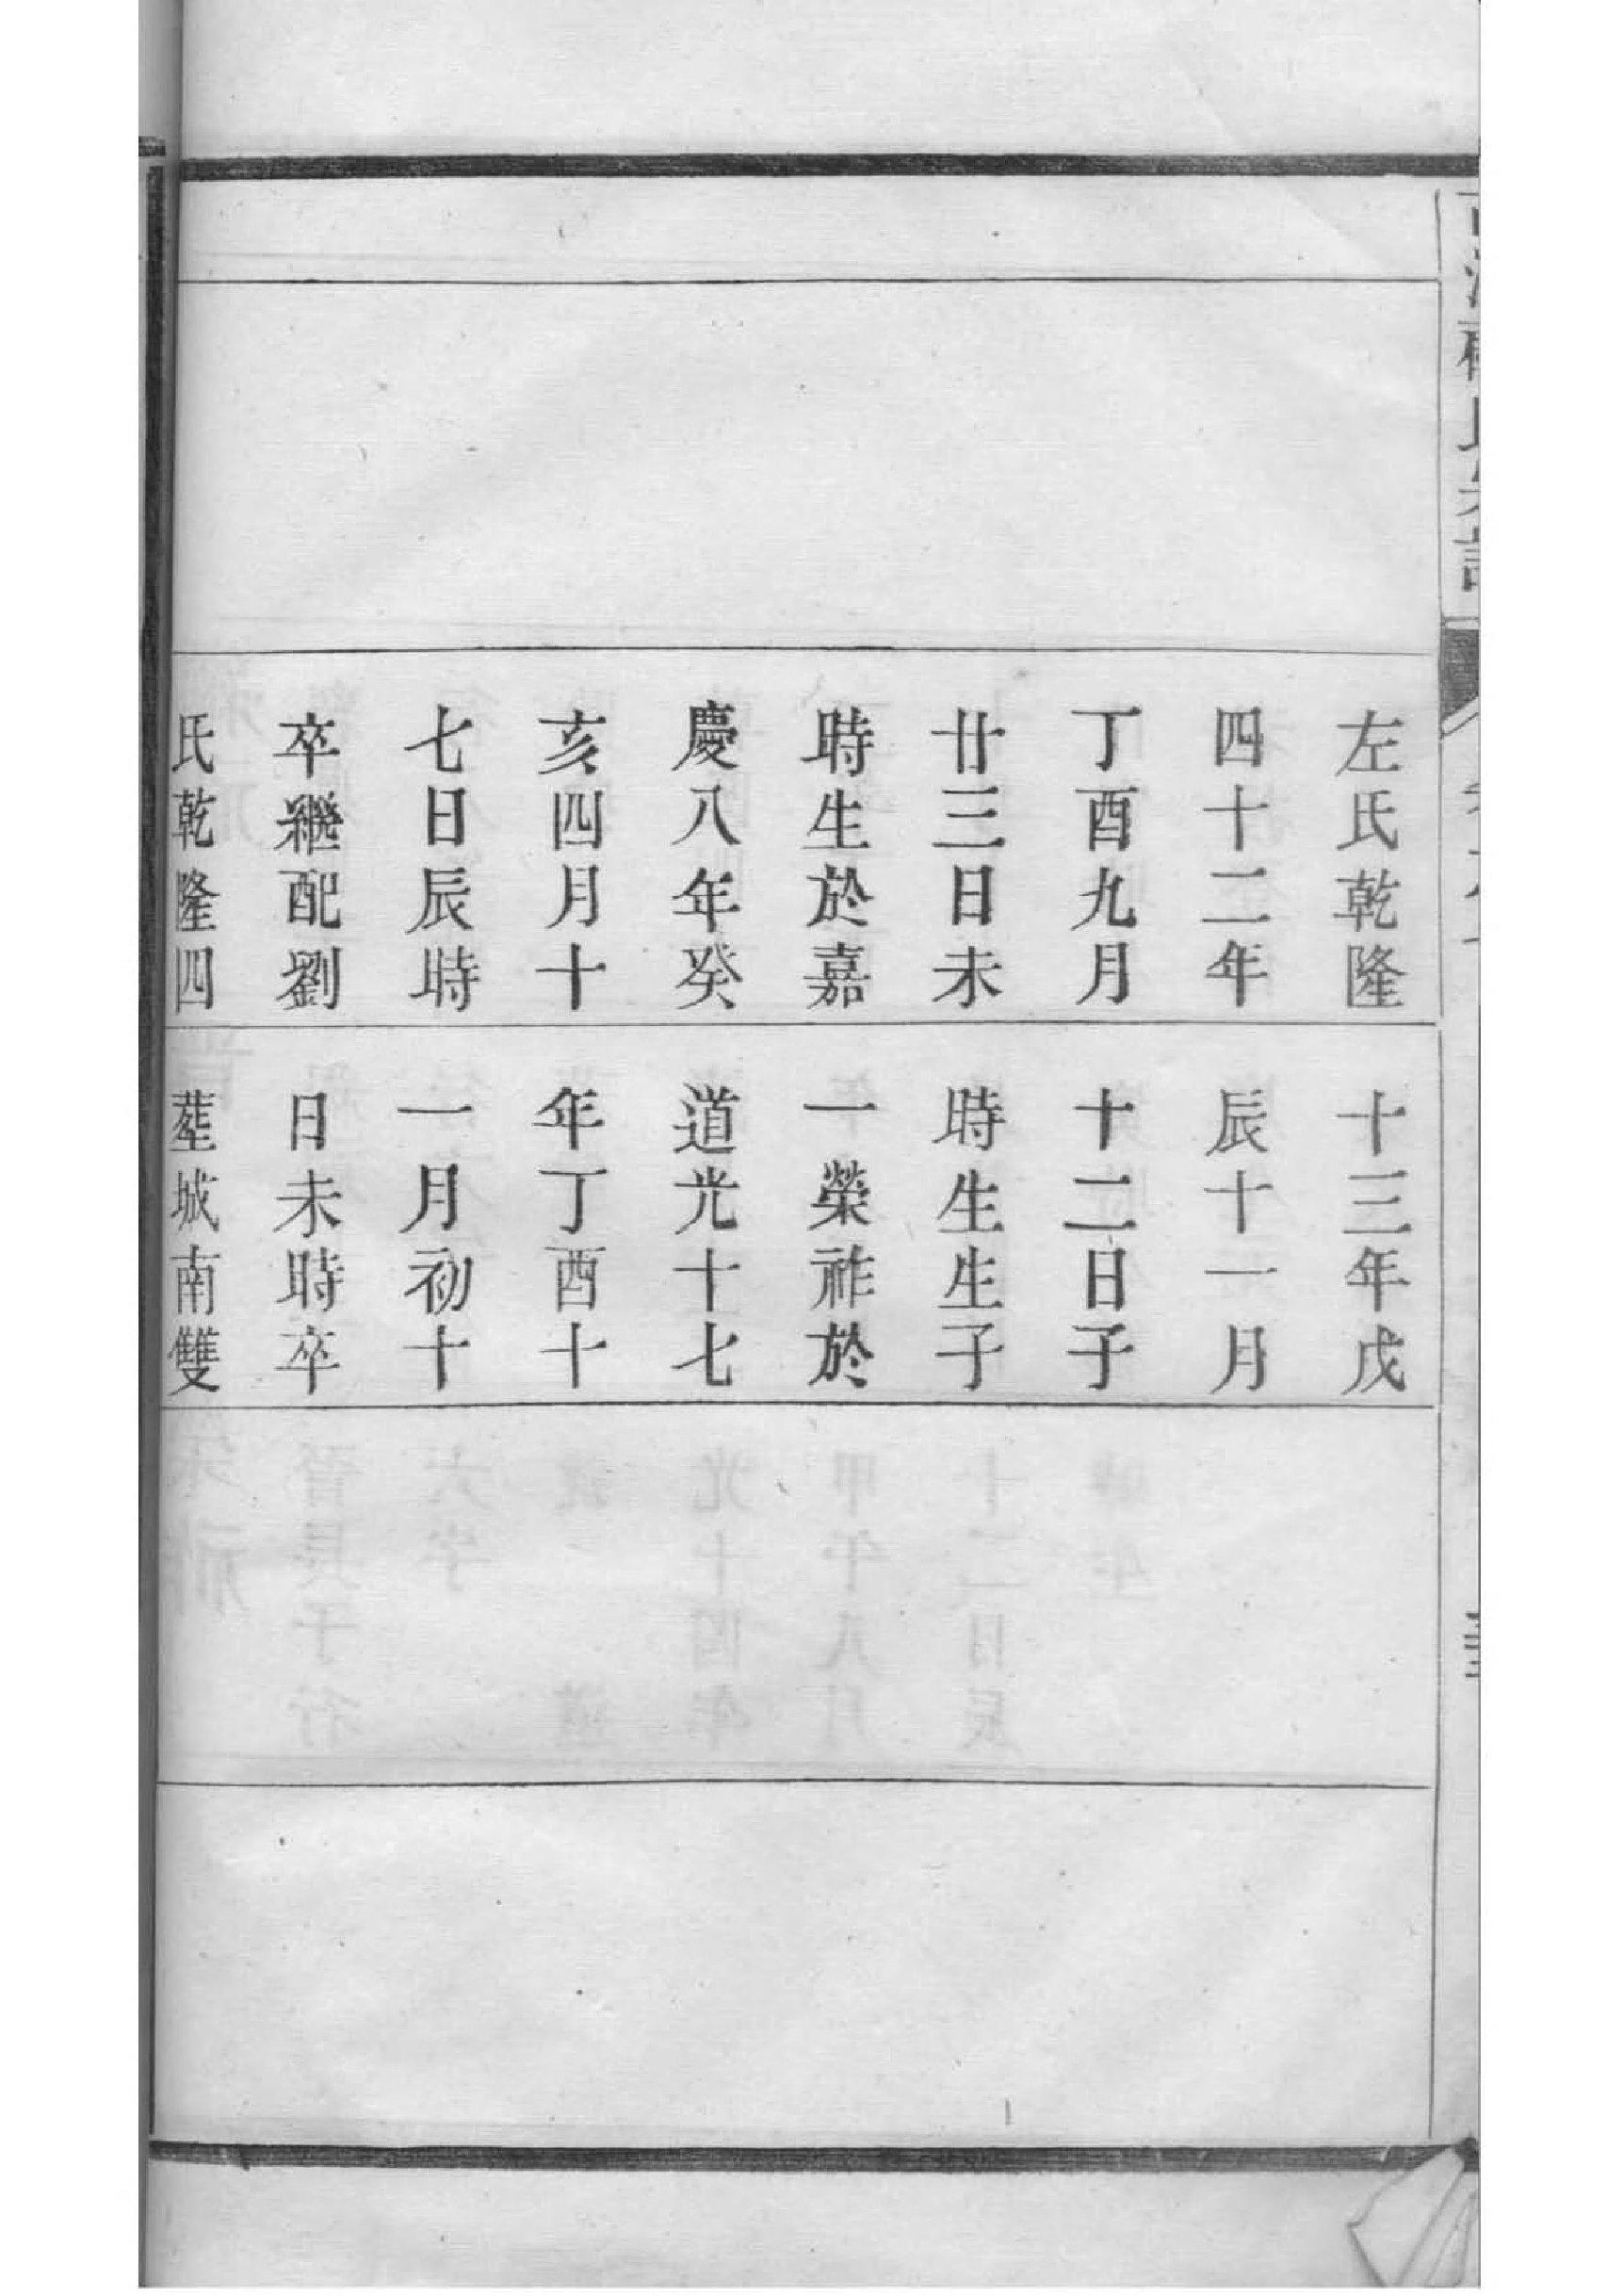 左氏乾隆
四十二年
丁酉九月
廿三日未
時生於嘉
慶八年癸
亥四月十
七日辰時
卒繼配劉
氏乾隆四
十三年戊
辰十一月
十二日子
時生生子
一榮祚於
道光十七
年丁酉十
一月初十
日未時卒
塟城南雙